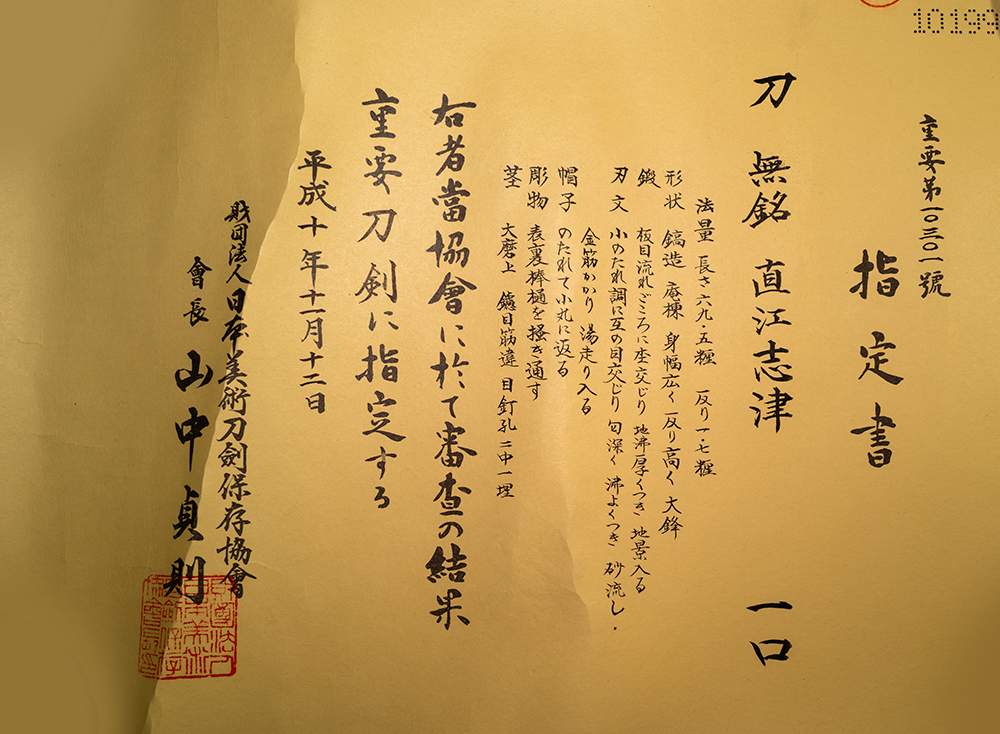 10199
重要第一〇三〇一號
指定書
刀 無銘 直江志津 一口
法量 長さ六九・五糎 反り一・七糎
形状 鎬造 庵棟 身幅広く 反り高く 大鋒
鍛 板目流れごころに杢交じり 地沸厚くつき 地景入る
刃文 小のたれ調に互の目交じり 匂深く 沸よくつき 砂流し・
金筋かかり 湯走り入る
帽子 のたれて小丸に返る
彫物 表裏棒樋を掻き通す
茎 大磨上 鑢目筋違 目釘孔二中一埋
右者當協會に於て審査の結果
重要刀剣に指定する
平成十年十一月十二日
財団法人日本美術刀劍保存協會
會長 山中貞則